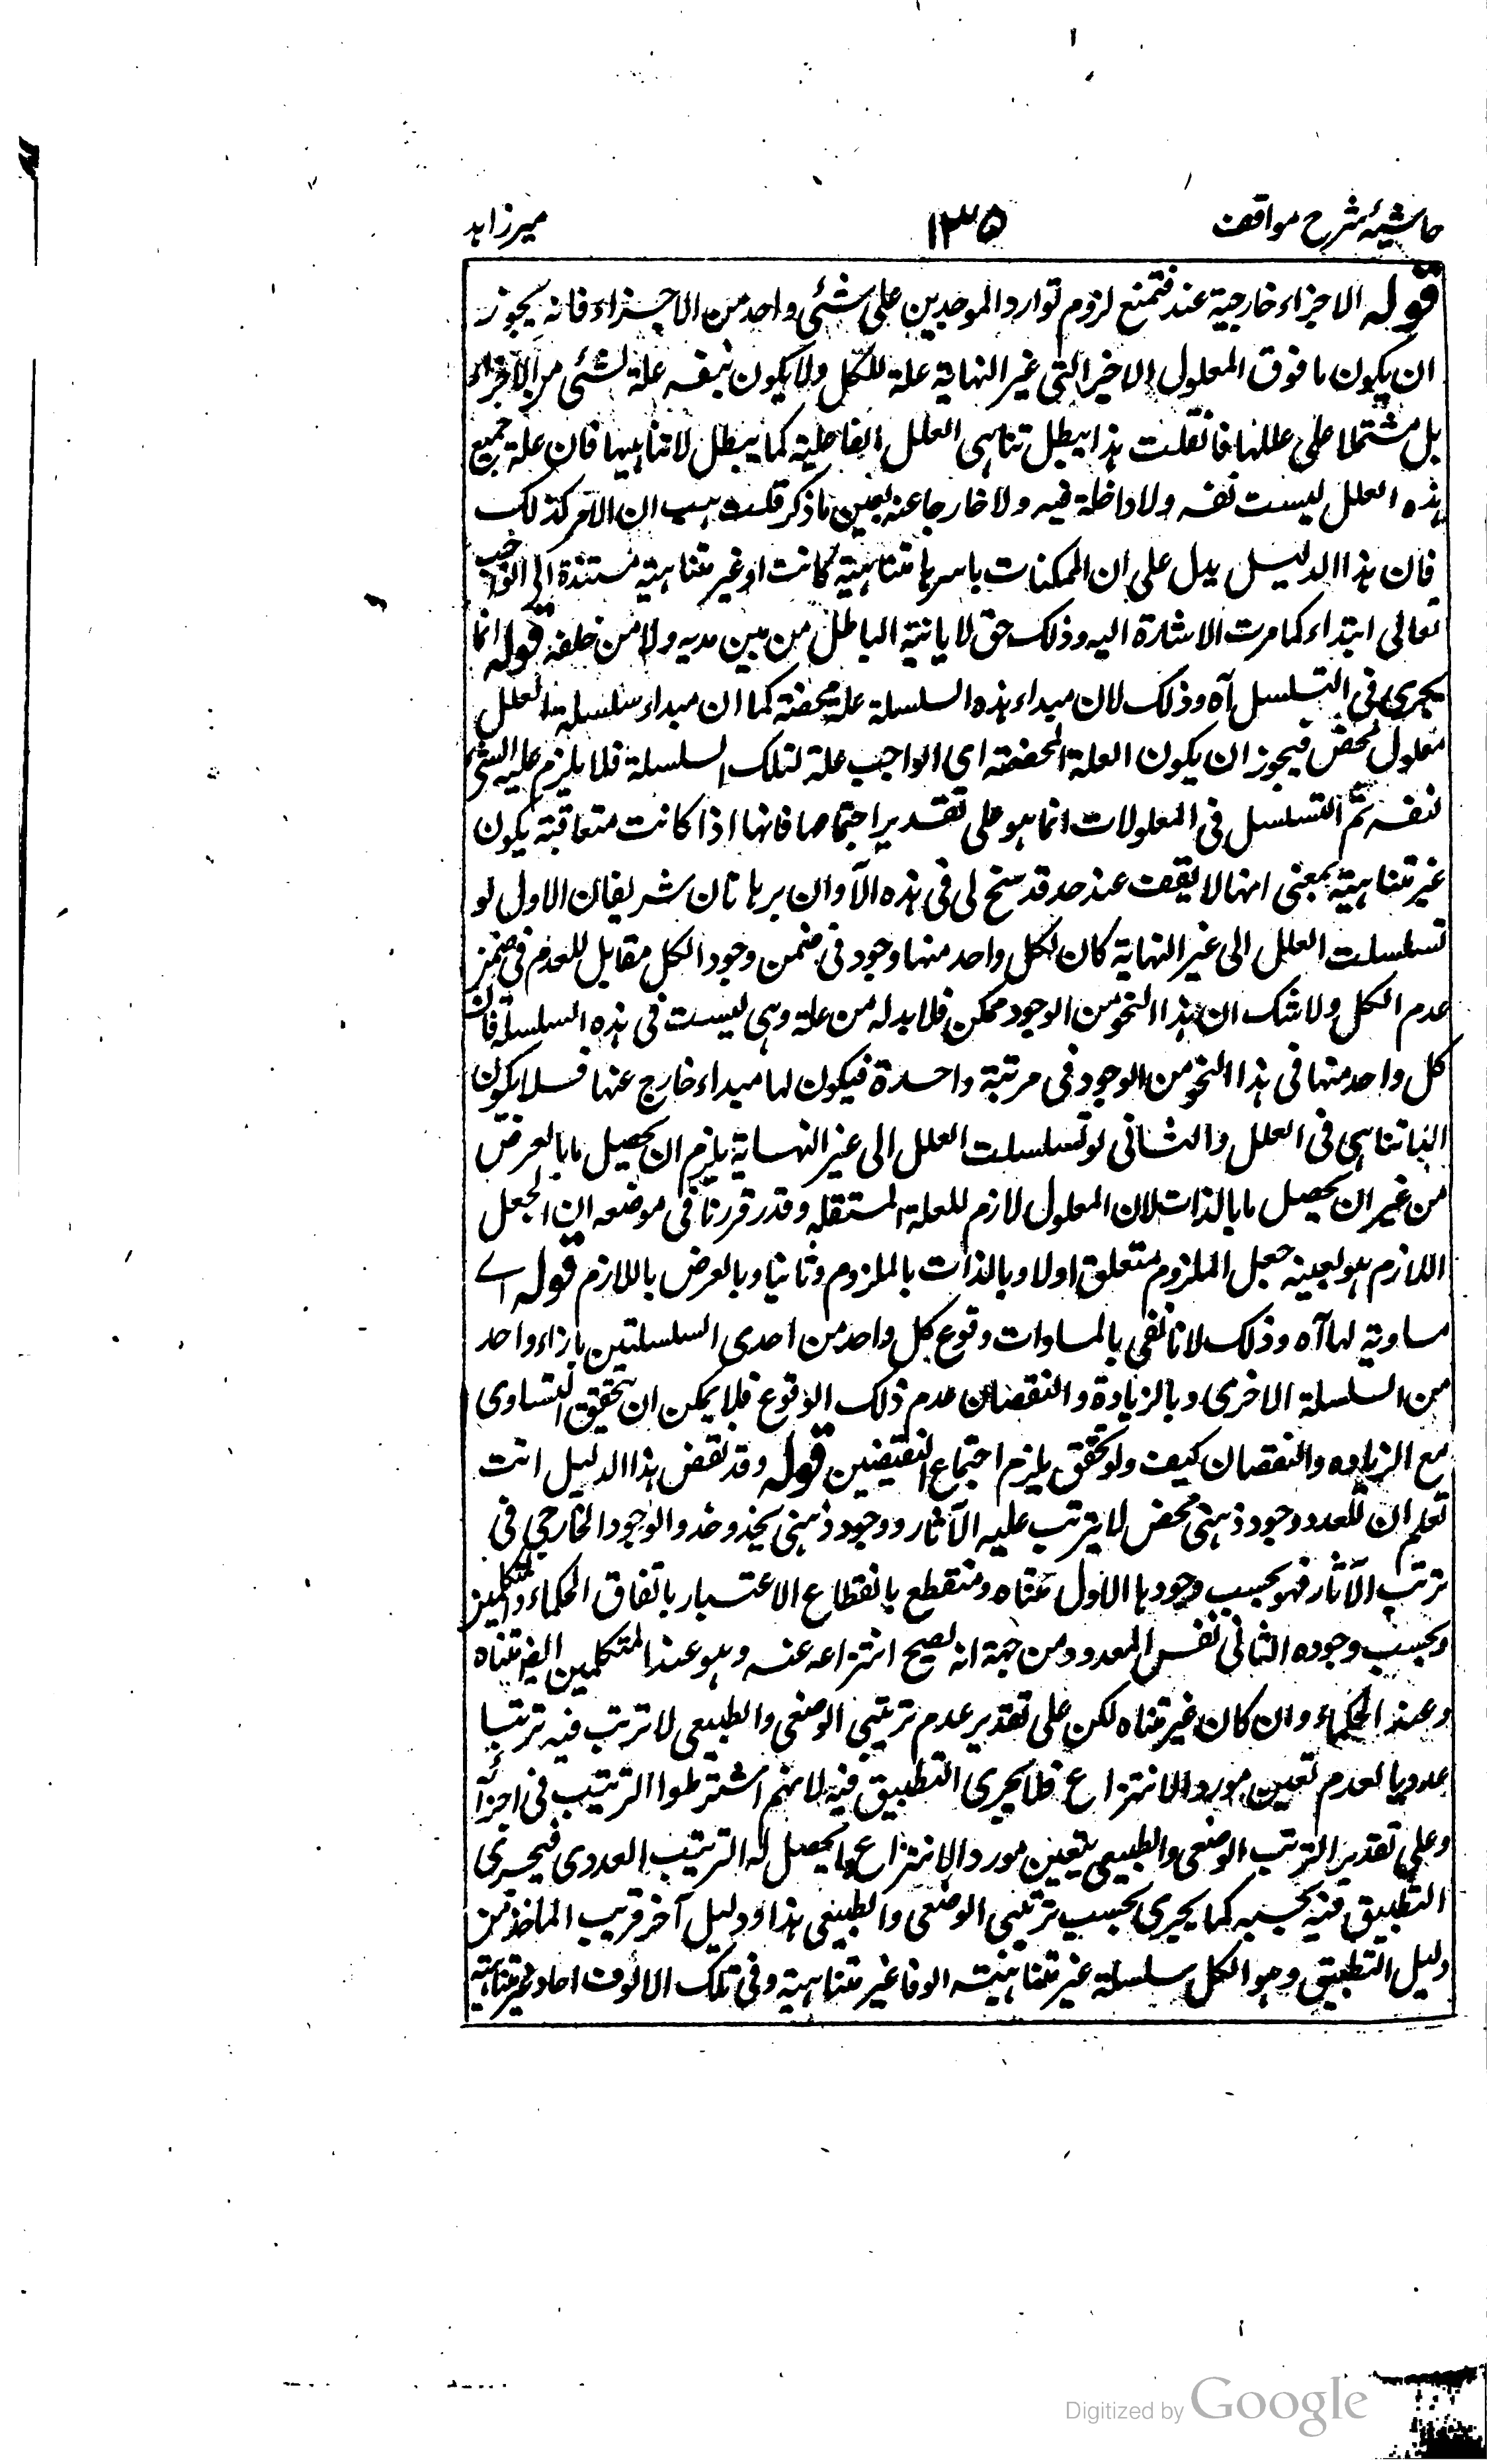 حاشیۂ شرح مواقف ١٣٥ میرزاہد
قوله الاجزاء خارجية عند فتمنع لزوم توارد الموجدين على شئي واحد من الاجزاء فانه يجوز
ان يكون ما فوق المعلول الاخير التي غير النهاية علة للكل ولا يكون بنفسه علة لشئي من الاجزاء
بل مشتملا على عللها فانقلت هذا يبطل تناهي العلل الفاعلية كما يبطل لا تناهيها فان علة جميع
هذه العلل ليست نفسه ولا داخلة فيه ولا خارجا عنه بعين ما ذكر قلت هب ان الامر كذلك
فان هذا الدليل يدل على ان الممكنات باسرها متناهية كانت او غير متناهية مستندة الى الواجب
تعالى ابتداء كما مرت الاشارة اليه وذلك حق لا ياتيه الباطل من بين يديه ولا من خلفه قوله انما
يجري في التسلسل آه وذلك لان مبداء هذه السلسلة علة محضة كما ان مبداء سلسلة العلل
معلول محض فيجوز ان يكون العلة المحضة اي الواجب علة لتلك السلسلة فلا يلزم علية الشئ
لنفسه ثم التسلسل في المعلولات انما هو على تقدير اجتماعها فانها اذا كانت متعاقبة يكون
غير متناهية بمعنى انها لا يقف عند حد قد سنح لي في هذه الآوان برهانان شريفان الاول لو
تسلسلت العلل الى غير النهاية كان لكل واحد منها وجود في ضمن وجود الكل مقابل للعدم في ضمن
عدم الكل ولا شك ان هذا النحو من الوجود ممكن فلا بد له من علة وهي ليست في هذه السلسلة فان
كل واحد منها في هذا النحو من الوجود في مرتبة واحدة فيكون لها مبداء خارج عنها فلا يكون
اللاتناهي في العلل والثاني لو تسلسلت العلل الى غير النهاية يلزم ان يحصل ما بالعرض
من غير ان يحصل ما بالذات لان المعلول لازم للعلة المستقلة وقد قررنا في موضعه ان الجعل
اللازم هو بعينه جعل الملزوم متعلق اولا وبالذات بالملزوم وثانيا وبالعرض باللازم قوله اے
مساوية لها آه وذلك لانا نعني بالمساوات وقوع كل واحد من احدى السلسلتين بازاء واحد
من السلسلة الاخرى وبالزيادة والنقصان عدم ذلك الوقوع فلا يمكن ان يتحقق التساوى
مع الزيادة والنقصان كيف ولو تحقق يلزم اجتماع النقيضين قوله وقد نقض هذا الدليل انت
تعلم ان للعدد وجود ذهني محض لا يترتب عليه الآثار ووجود ذهني يحذو حذو الوجود الخارجي في
ترتب الآثار فهو بحسب وجودها الاول متناه ومنقطع بانقطاع الاعتبار باتفاق الحكماء والمتكلمين
وبحسب وجوده الثاني نفس المعدود من جهة انه يصح انتزاعه عنه وهو عند المتكلمين ايضا متناه
وعند الحكماء وان كان غير متناه لكن على تقدير عدم ترتبي الوضعي والطبيعي لا ترتب فيه ترتبا
عدديا لعدم تعين مورد الانتزاع فلا يجري التطبيق فيه لانهم اشترطوا الترتيب في اجزائه
وعلى تقدير الترتب الوضعي والطبيعي يتعين مورد الانتزاع ويحصل له الترتيب العددى فيجرى
التطبيق فيه بحسبه كما يجرى بحسب ترتبي الوضعي والطبيعي هذا ودليل آخر قريب الماخذ من
دليل التطبيق وهو الكل سلسلة غير متناهية الوفا غير متناهية وفي تلك الالوف احاد غير متناهية
Digitized by Google